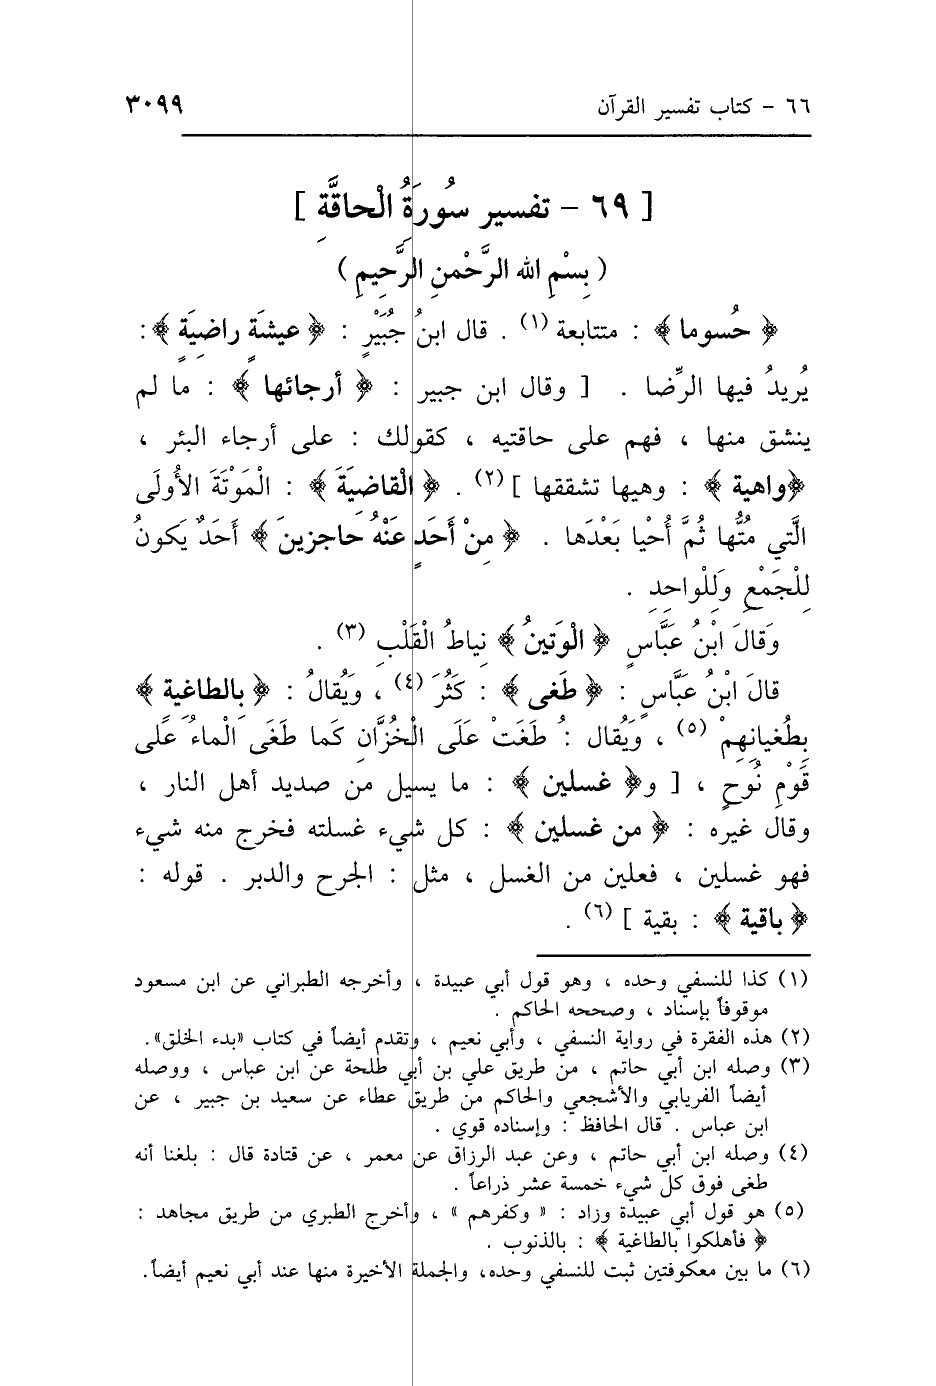 ٦٦ - كتاب تفسير القرآن ٣٠٩٩
[ ٦٩ - تفسير سُورَةُ الْحاقَّةِ ]
( بِسْمِ الله الرَّحْمنِ الرَّحِيمِ )
﴿ حُسوما ﴾ : متتابعة (١) . قال ابنُ جُبَيْرٍ : ﴿ عيشَةٍ راضِيَةٍ ﴾ :
يُريدُ فيها الرِّضا . [ وقال ابن جبير : ﴿ أرجائها ﴾ : ما لم
ينشق منها ، فهم على حاقتيه ، كقولك : على أرجاء البئر ،
﴿واهية ﴾ : وهيها تشققها ] (٢) . ﴿ الْقاضِيَةَ ﴾ : الْمَوْتَةَ الأُولَى
الَّتي مُتُّها ثُمَّ أُحْيا بَعْدَها . ﴿ مِنْ أَحَدٍ عَنْهُ حاجزينَ ﴾ أَحَدٌ يَكونُ
لِلْجَمْعِ وَلِلْواحِدِ .
وَقالَ ابْنُ عَبَّاسٍ ﴿ الْوَتينُ ﴾ نِياطُ الْقَلْبِ (٣) .
قالَ ابْنُ عَبَّاسٍ : ﴿ طَغى ﴾ : كَثُرَ (٤) ، وَيُقالُ : ﴿ بِالطاغية ﴾
بِطُغيانِهِمْ (٥) ، وَيُقال : طَغَتْ عَلَى الْخُزَّانِ كَما طَغَى الْماءُ عَلَى
قَوْمِ نُوحٍ ، [ و﴿ غسلين ﴾ : ما يسيل من صديد أهل النار ،
وقال غيره : ﴿ من غسلين ﴾ : كل شيء غسلته فخرج منه شيء
فهو غسلين ، فعلين من الغسل ، مثل : الجرح والدبر . قوله :
﴿ باقية ﴾ : بقية ] (٦) .
(١) كذا للنسفي وحده ، وهو قول أبي عبيدة ، وأخرجه الطبراني عن ابن مسعود
موقوفاً بإسناد ، وصححه الحاكم .
(٢) هذه الفقرة في رواية النسفي ، وأبي نعيم ، وتقدم أيضاً في كتاب «بدء الخلق».
(٣) وصله ابن أبي حاتم ، من طريق علي بن أبي طلحة عن ابن عباس ، ووصله
أيضاً الفريابي والأشجعي والحاكم من طريق عطاء عن سعيد بن جبير ، عن
ابن عباس . قال الحافظ : وإسناده قوي .
(٤) وصله ابن أبي حاتم ، وعن عبد الرزاق عن معمر ، عن قتادة قال : بلغنا أنه
طغى فوق كل شيء خمسة عشر ذراعاً .
(٥) هو قول أبي عبيدة وزاد : « وكفرهم » ، وأخرج الطبري من طريق مجاهد :
﴿ فأهلكوا بالطاغية ﴾ : بالذنوب .
(٦) ما بين معكوفتين ثبت للنسفي وحده، والجملة الأخيرة منها عند أبي نعيم أيضاً.